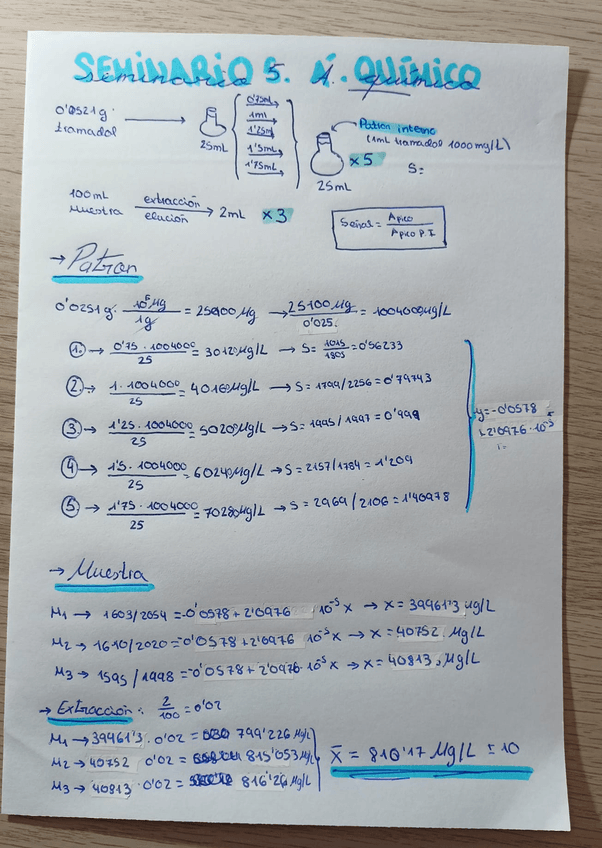 SEMINARIO 5. A. QUÍMICO
seminario 5. A. químico
0'0521g tramadol → 25mL
0'75mL
1mL
1'25mL
1'5mL
1'75mL
25mL x5
Patron interno
(1mL tramadol 1000mg/L)
S=
100mL Muestra extracción elución → 2mL x3
Señal = Apico / Apico P.I
→ Patron
0'0251g · 10⁶µg / 1g = 25100µg → 25100µg / 0'025 = 1004000µg/L
1. → 0'75 · 1004000 / 25 = 30120µg/L → S = 1015 / 1805 = 0'56233
2. → 1 · 1004000 / 25 = 40160µg/L → S = 1799/2256 = 0'79743
3. → 1'25 · 1004000 / 25 = 50200µg/L → S = 1995/1997 = 0'999
4 → 1'5 · 1004000 / 25 = 60240µg/L → S = 2157/1784 = 1'209
5. → 1'75 · 1004000 / 25 = 70280µg/L → S = 2969/2106 = 1'40978
y = -0'0578
+2'0976·10⁻⁵
→ Muestra
M1 → 1603/2054 = -0'0578 + 2'0976 10⁻⁵x → x = 39961'3 µg/L
M2 → 1610/2020 = -0'0578 + 2'0976 10⁻⁵x → x = 40752 µg/L
M3 → 1595/1998 = -0'0578 + 2'0976·10⁻⁵x → x = 40813 µg/L
→ Extracción: 2/100 = 0'02
M1 → 39961'3 · 0'02 = 799'226 µg/L
M2 → 40752 · 0'02 = 815'053 µg/L
M3 → 40813 · 0'02 = 816'26 µg/L
x̄ = 810'17 µg/L ± 10